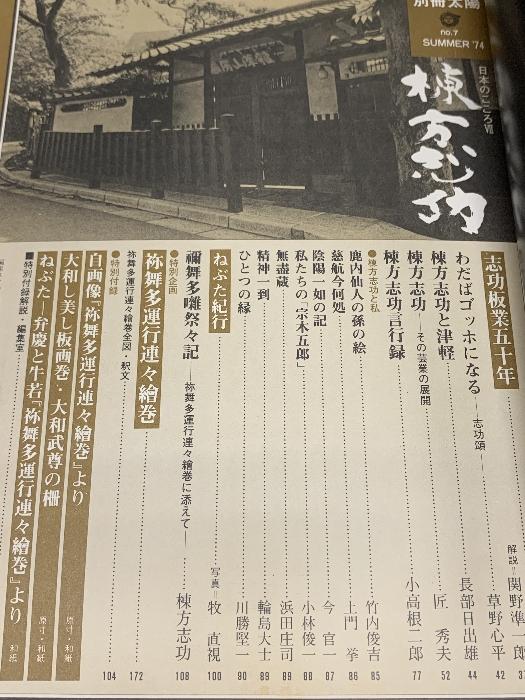 別冊太陽
no.7
SUMMER '74
日本のこころⅦ
棟方志功
志功板業五十年 解説=関野準一郎
わだばゴッホになる——志功頌—— 草野心平 42
棟方志功と津軽 長部日出雄 44
棟方志功——その芸業の展開 匠 秀夫 52
棟方志功言行録 小高根二郎 77
●棟方志功と私
鹿内仙人の孫の絵 竹内俊吉 85
慈航今何処 土門 拳 86
陰陽一如の記 今 官一 87
私たちの「宗木五郎」 小林俊一 88
無盡蔵 浜田庄司 89
精神一到 輪島大士 89
ひとつの縁 川勝堅一 90
ねぶた紀行 写真=牧 直視 100
禰舞多囃祭々記——祢舞多運行連々繪巻に添えて—— 棟方志功 108
●特別企画
祢舞多運行連々繪巻
祢舞多運行連々繪巻全図・釈文 172
●特別付録 104
自画像『祢舞多運行連々繪巻』より
大和し美し板画巻・大和武尊の柵 原寸・和紙
ねぶた——弁慶と牛若『祢舞多運行連々繪巻』より 原寸・和紙
■特別付録解説・編集室